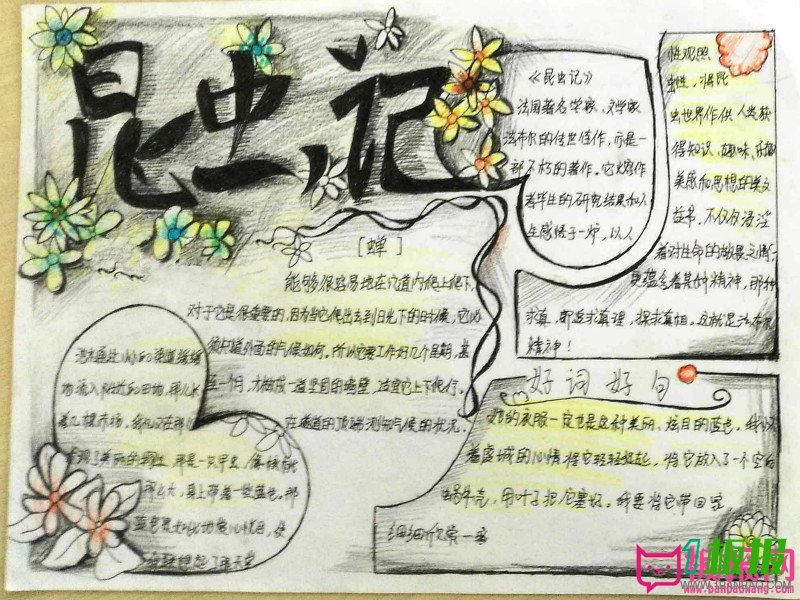 昆虫记
《昆虫记》
法国著名学家、文学家
法布尔的传世佳作,而是一
部不朽的著作。它熔作
者毕生的研究结果和人
生感悟于一炉,以人
性观照
虫性,将昆
虫世界作供人类获
得知识、趣味、
美感和思想的美文
在书,不仅仅浸淫
着对生命的敬畏之情,
更蕴含着某种精神,那种
求真,即追求真理,探求真相。这就是法布尔
精神!
[蝉]
能够很容易地在穴道内爬上爬下,
对于它是很重要的,因为当它爬出去到日光下的时候,它必
须知道外面的气候如何。所以它要工作好几个星期,甚
至一个月,才做成一道坚固的墙壁,适宜它上下爬行。
在隧道的顶端测知气候的状况。
池水通过小小的渠道缓缓
地流入附近的田地,那儿长
着几棵
那是一只甲虫,像
那么大,身上带着一些蓝色。那
蓝色是如此地
天堂
好词好句
她的衣服一定也是这种美丽、炫目的蓝色。我怀
着虔诚的心情将它轻轻捡起,将它放入了一个空的
蜗牛壳,用叶子把它塞好。我要将它带回家
细细欣赏一番
1板报网
WWW.1BANBAO.COM
www.banbaowang.com